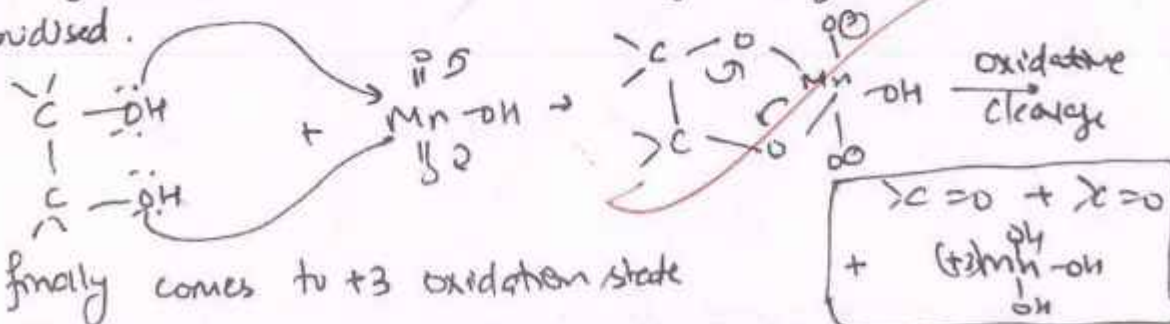 oxidised.
C—OH + Mn—OH → C—O Mn—OH oxidative cleavage
C—OH O C—O O
>C=O + >C=O
+ (+3)Mn—OH
OH
OH
finally comes to +3 oxidation state